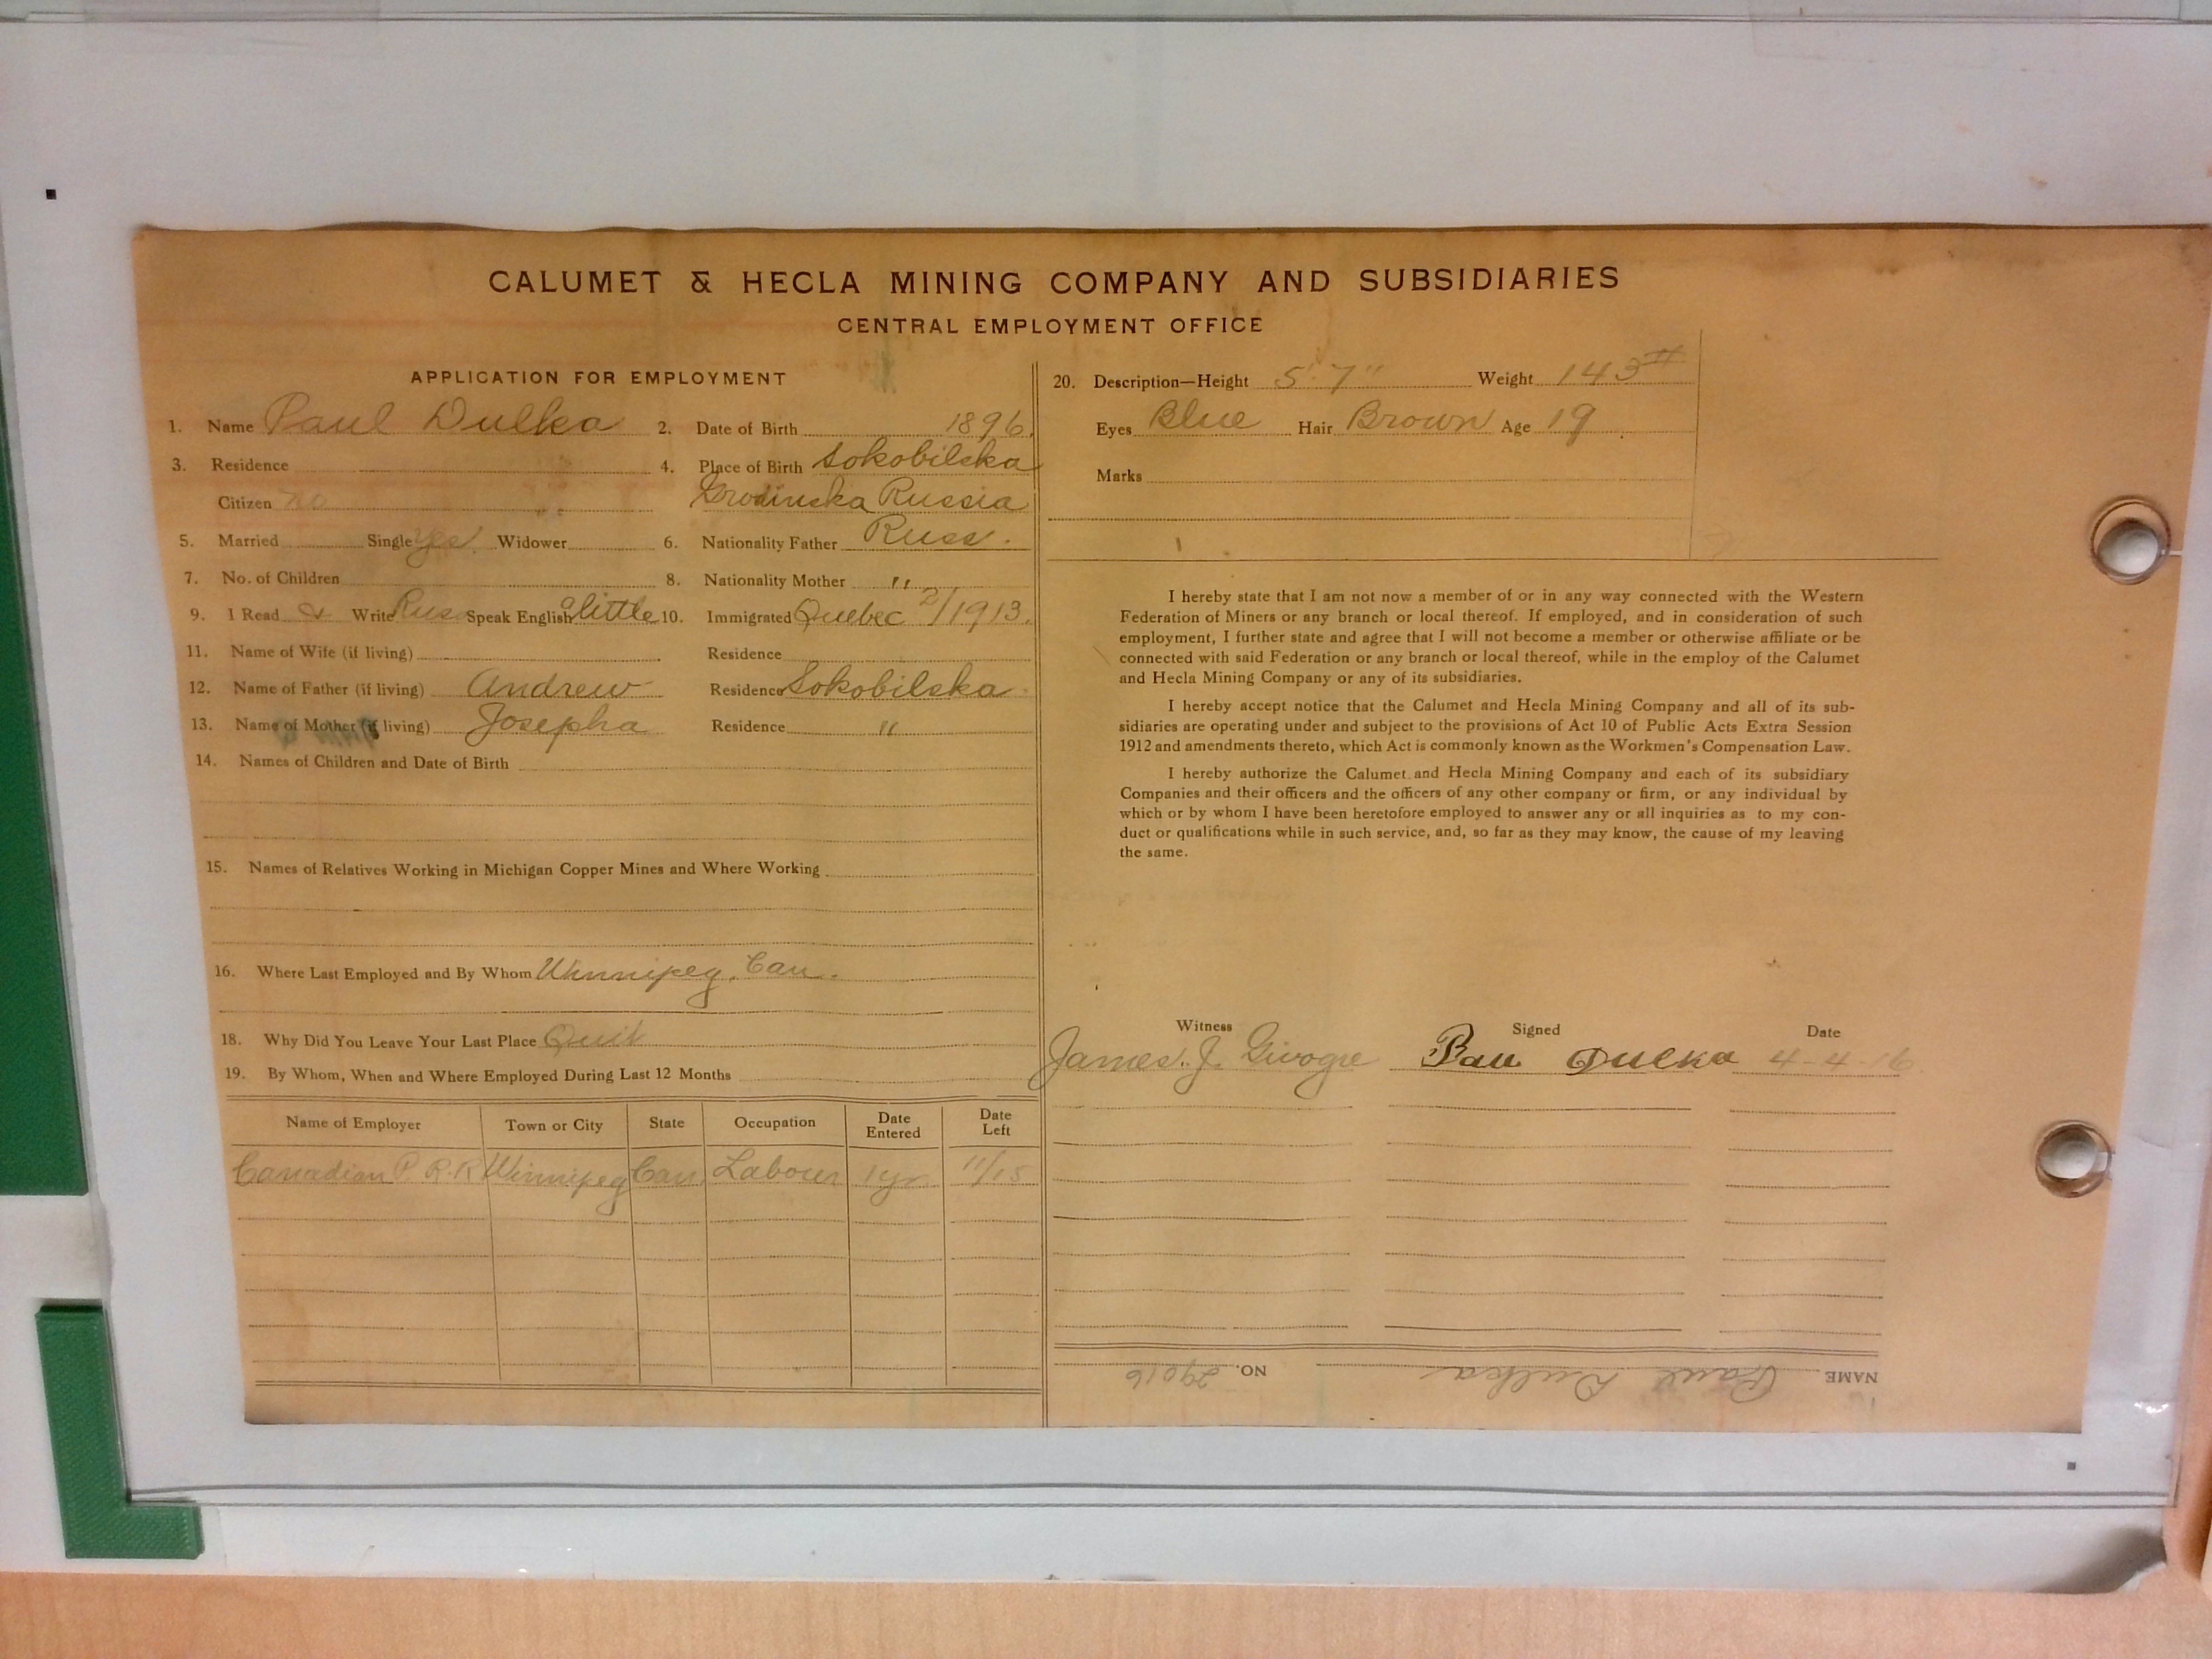 CALUMET & HECLA MINING COMPANY AND SUBSIDIARIES
CENTRAL EMPLOYMENT OFFICE
APPLICATION FOR EMPLOYMENT
1. Name Paul Dulka 2. Date of Birth 1896
3. Residence 4. Place of Birth Sokobilska
Citizen no Russia
5. Married Single Yes Widower 6. Nationality Father Russ.
7. No. of Children 8. Nationality Mother "
9. I Read & Write Russ Speak English a little 10. Immigrated Quebec 2/1913.
11. Name of Wife (if living) Residence
12. Name of Father (if living) Andrew Residence Sokobilska
13. Name of Mother (if living) Josepha Residence "
14. Names of Children and Date of Birth
15. Names of Relatives Working in Michigan Copper Mines and Where Working
16. Where Last Employed and By Whom Winnipeg, Can.
18. Why Did You Leave Your Last Place Quit
19. By Whom, When and Where Employed During Last 12 Months
Name of Employer Town or City State Occupation Date Entered Date Left
Canadian P. R.R Winnipeg Can Labour 1 yr. 11/15
20. Description—Height 5' 7" Weight 143#
Eyes Blue Hair Brown Age 19
Marks
I hereby state that I am not now a member of or in any way connected with the Western
Federation of Miners or any branch or local thereof. If employed, and in consideration of such
employment, I further state and agree that I will not become a member or otherwise affiliate or be
connected with said Federation or any branch or local thereof, while in the employ of the Calumet
and Hecla Mining Company or any of its subsidiaries.
I hereby accept notice that the Calumet and Hecla Mining Company and all of its sub-
sidiaries are operating under and subject to the provisions of Act 10 of Public Acts Extra Session
1912 and amendments thereto, which Act is commonly known as the Workmen's Compensation Law.
I hereby authorize the Calumet and Hecla Mining Company and each of its subsidiary
Companies and their officers and the officers of any other company or firm, or any individual by
which or by whom I have been heretofore employed to answer any or all inquiries as to my con-
duct or qualifications while in such service, and, so far as they may know, the cause of my leaving
the same.
Witness Signed Date
James. J. Pau Dulka 4-4-16
NAME Paul Dulka NO. 29016